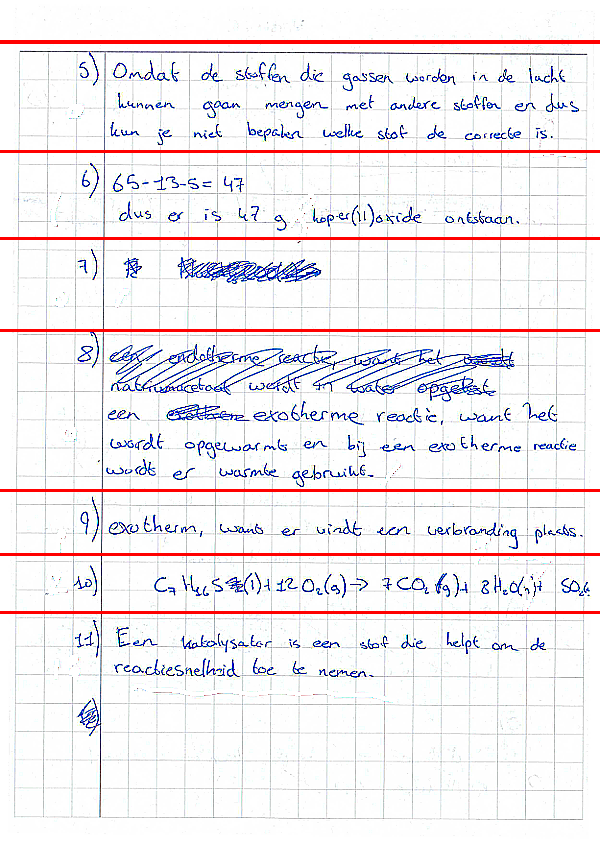 5) Omdat de stoffen die gassen worden in de lucht
kunnen gaan mengen met andere stoffen en dus
kun je niet bepalen welke stof de correcte is.
6) 65-13-5= 47
dus er is 47 g koper(II)oxide ontstaan.
7)
8) een endotherme reactie, want het
natriumacetaat werdt in water opgelost
een exotherme reactie, want het
wordt opgewarmt en bij een exotherme reactie
wordt er warmte gebruikt.
9) exotherm, want er vindt een verbranding plaats.
10) C₇H₁₆S (l)+12O₂(g)→ 7CO₂(g)+ 8H₂O(l)+ SO₂
11) Een katalysator is een stof die helpt om de
reactiesnelheid toe te nemen.